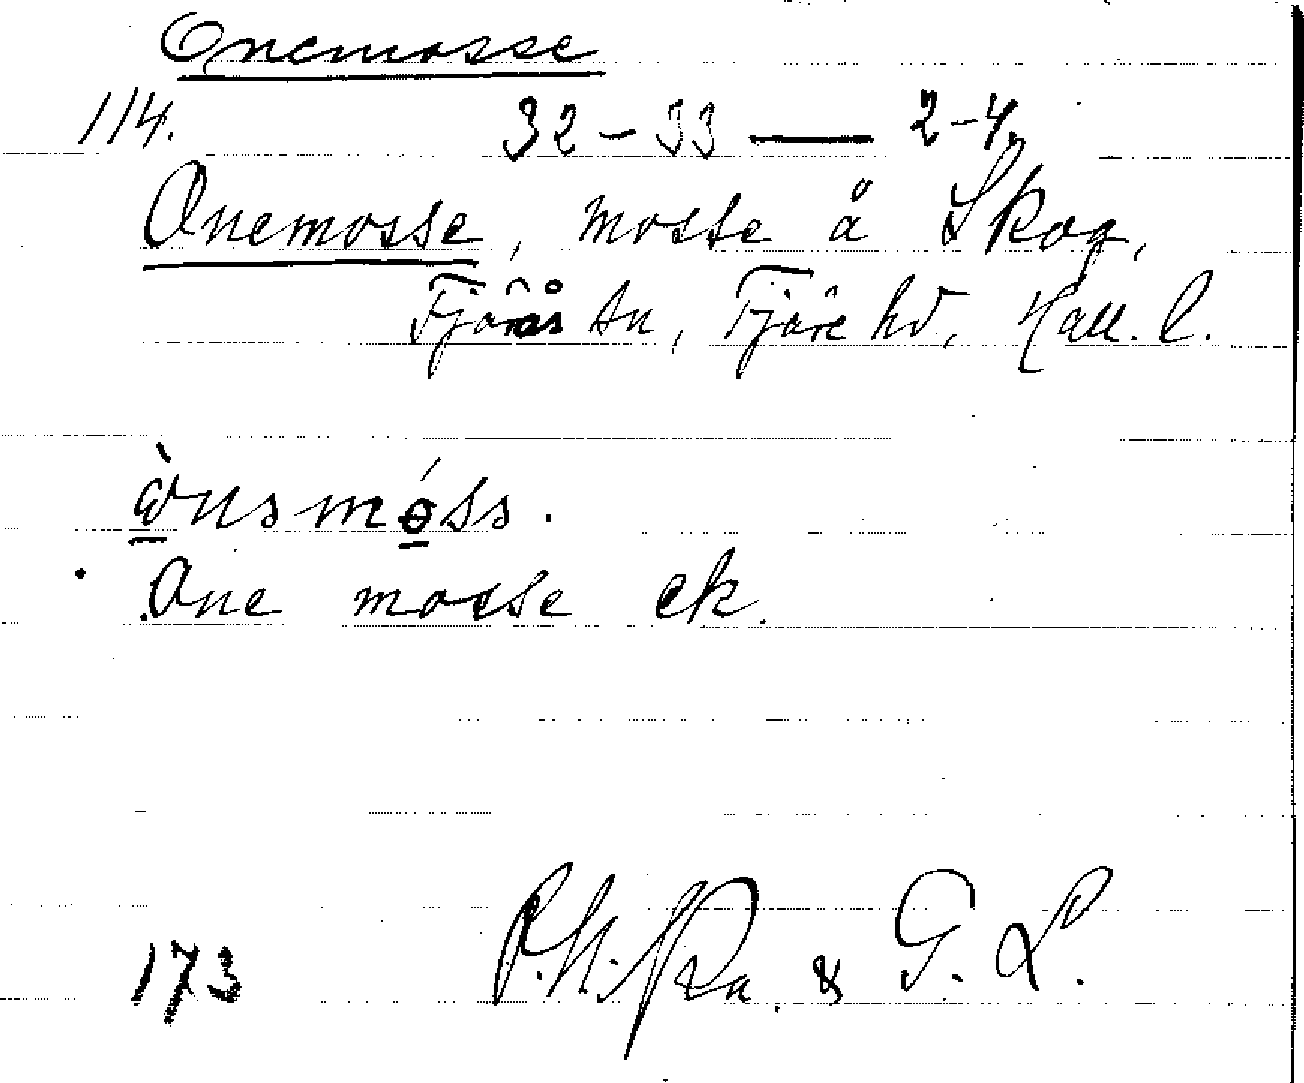 Onemosse
114. 32-33 — 2-4.
Onemosse, mosse å Skog,
Fjärås sn, Fjäre hd, Hall. l.
One mosse ek.
173 & G. L.